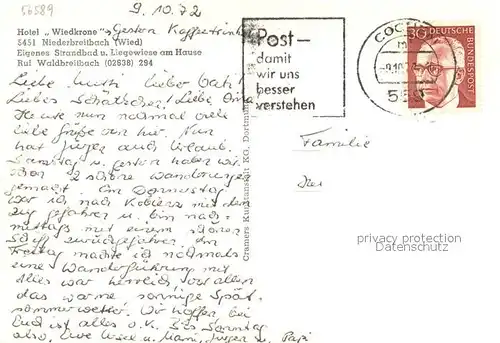 56589
9.10.72
Hotel „Wiedkrone" Gestern Kaffeetrinken
5451 Niederbreitbach (Wied)
Eigenes Strandbad u. Liegewiese am Hause
Ruf Waldbreitbach (02638) 294
Liebe Mutti lieber Vati!
Liebes Schätzchen! Liebe Oma
Heute nun nochmal viele
liebe Grüße von hier. Nun
hat Jürgen auch Urlaub.
Samstag u. gestern haben wir
schon 2 schöne Wanderungen
gemacht. Am Donnerstag
war ich nach Koblenz mit dem
Zug gefahren u. bin nach-
mittags mit einem
Schiff zurückgefahren. Am
Freitag machte ich nochmals
eine Wanderführung mit
Alles war herrlich, vor allem
das warme sonnige Spät-
sommerwetter. Wir hoffen bei
Euch ist alles o.K. Bis Sonntag
also, Eure Usel u. Mami, Jürgen u. Papi
Cramers Kunstanstalt KG, Dortmund
Post–
damit
wir uns
besser
verstehen
COCHEM
-9.10.72
559
30
DEUTSCHE
BUNDESPOST
Familie
privacy protection
Datenschutz